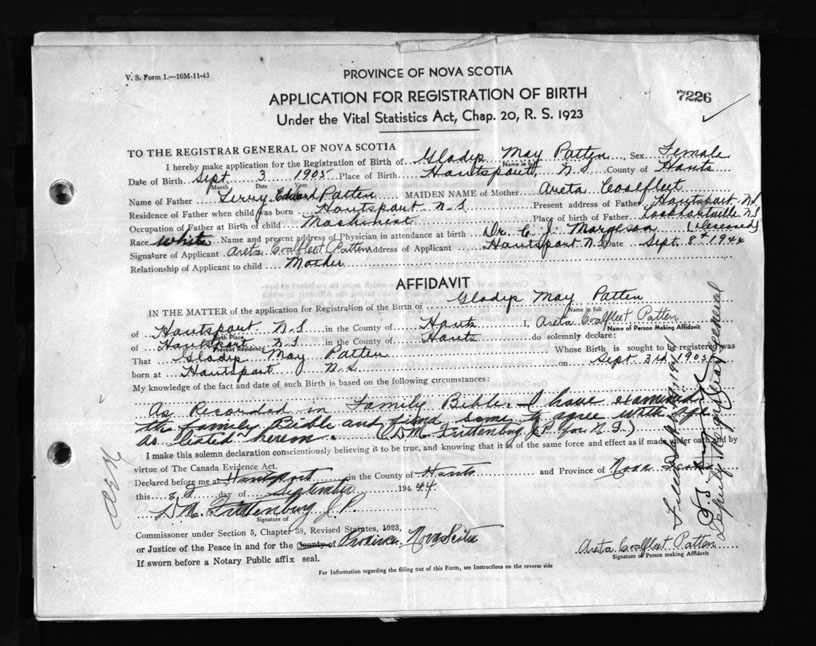 V. S. Form 1.—10M-11-43
PROVINCE OF NOVA SCOTIA
APPLICATION FOR REGISTRATION OF BIRTH
7226
Under the Vital Statistics Act, Chap. 20, R. S. 1923
TO THE REGISTRAR GENERAL OF NOVA SCOTIA
I hereby make application for the Registration of Birth of Gladys May Patten, Sex Female
Name in full
Date of Birth Sept 3 1905 Place of Birth Hantsport, N.S. County of Hants
Month Date Year
Name of Father Edward Patten MAIDEN NAME of Mother Areta Coalfleet
Residence of Father when child was born Hantsport N.S Present address of Father Hantsport N.S
Occupation of Father at Birth of child Machinist Place of birth of Father N.S
Race White Name and present address of Physician in attendance at birth Dr. C. J. Margeson (Deceased)
Signature of Applicant Areta Coalfleet Patten Address of Applicant Hantsport N.S Date Sept. 8th 1944
Relationship of Applicant to child Mother
AFFIDAVIT
IN THE MATTER of the application for Registration of the Birth of Gladys May Patten
Name in full
of Hantsport N.S in the County of Hants I, Areta Coalfleet Patten
Birth Place
Name of Person Making Affidavit
of Hantsport N.S in the County of Hants do solemnly declare:
Present Residence
That Gladys May Patten Whose Birth is sought to be registered was
born at Hantsport N.S. on Sept 3rd 1905
My knowledge of the fact and date of such Birth is based on the following circumstances:
As Recorded in Family Bible. I have examined
the family Bible and find same to agree with
as listed herein. (D.M. Trittenburg J.P. for N.S.)
I make this solemn declaration conscientiously believing it to be true, and knowing that it is of the same force and effect as if made under oath and by
virtue of The Canada Evidence Act.
Declared before me at Hantsport in the County of Hants and Province of Nova Scotia
this 8 day of September 1944
D.M. Trittenburg J.P.
Signature of
Commissioner under Section 5, Chapter 38, Revised Statutes, 1923,
or Justice of the Peace in and for the County of Province Nova Scotia
If sworn before a Notary Public affix seal.
Areta Coalfleet Patten
Signature of Person making Affidavit
For Information regarding the filling out of this Form, see Instructions on the reverse side
Filed Sept
Deputy Registrar General